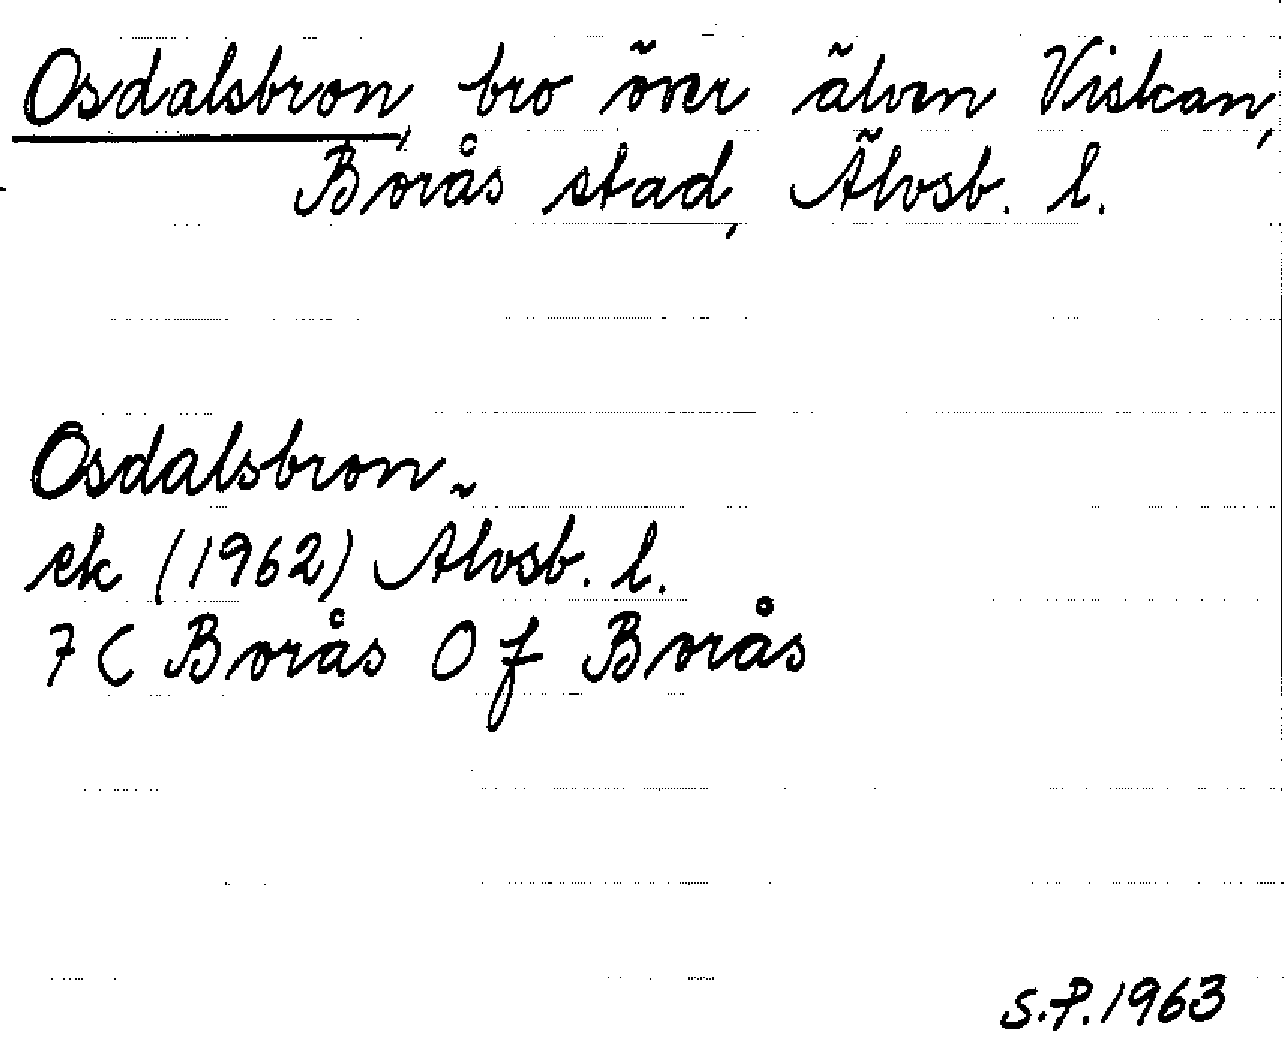 Osdalsbron, bro över älven Viskan,
Borås stad, Älvsb. l.
Osdalsbron
ek (1962) Älvsb. l.
7C Borås Of Borås
S.P. 1963